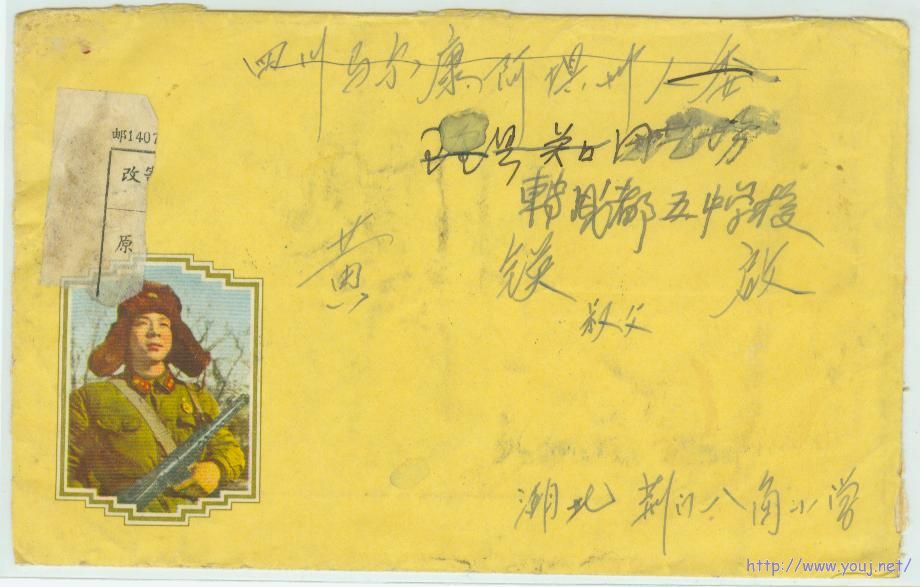 四川马尔康阿坝州人委
县关口
转成都五中学校
黄 镁 启
叔父
湖北 荆门八角小学
邮1407
改
原
http://www.youj.net/